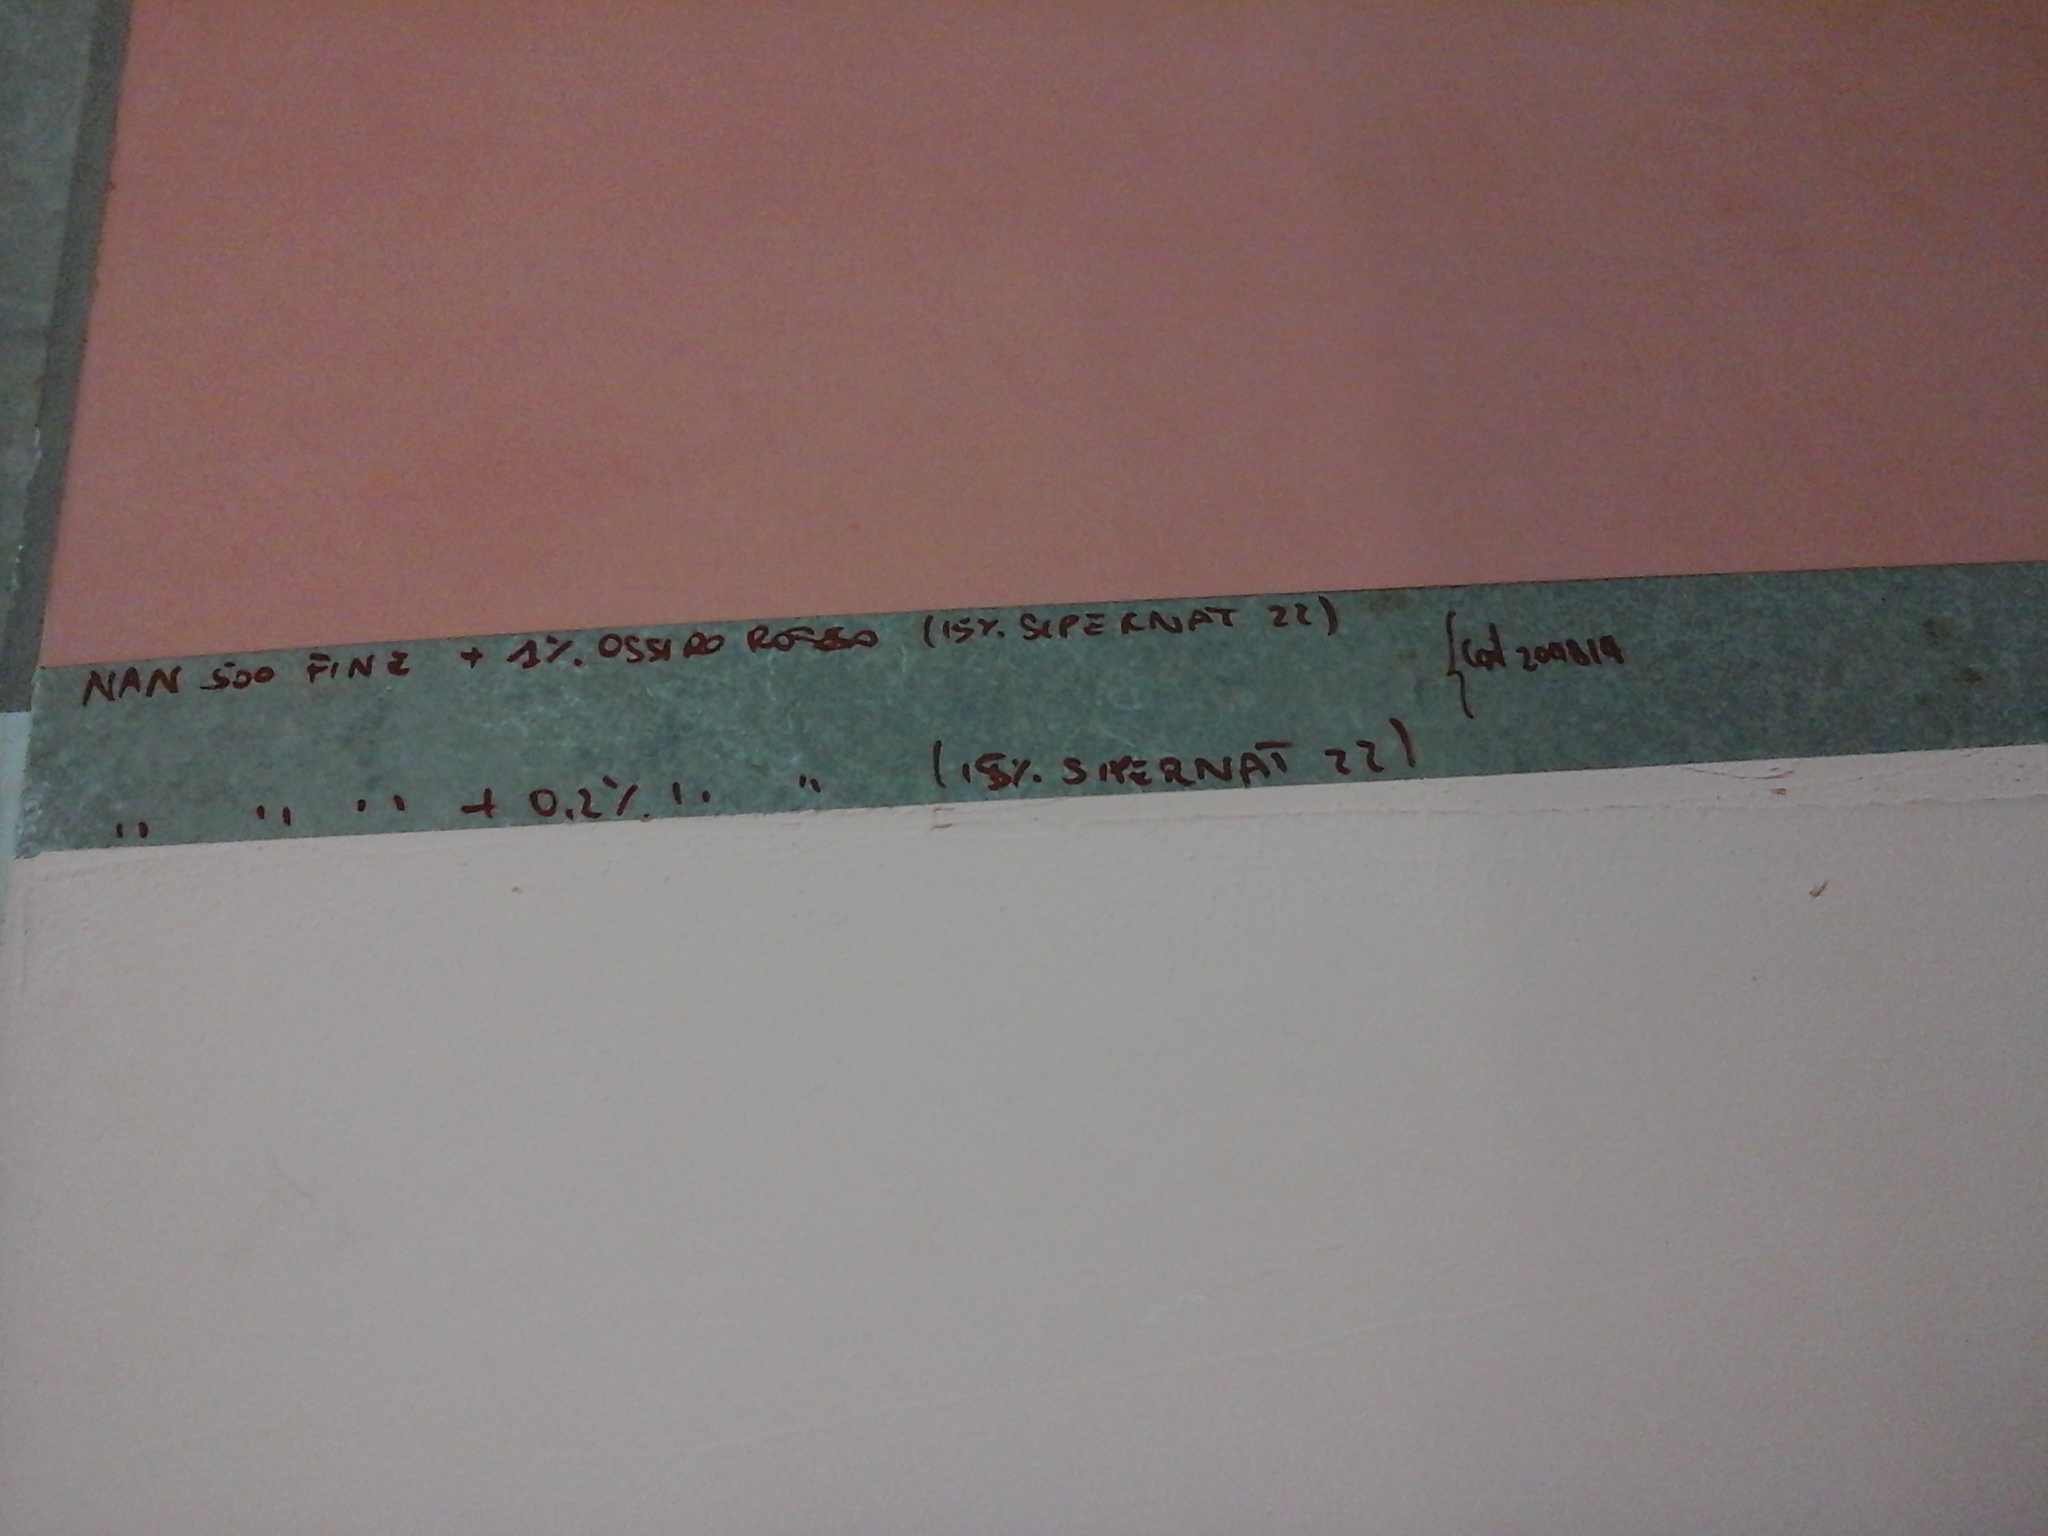 NAN 500 FINE + 1% OSSIDO ROSSO (15% SIPERNAT 22)
" " " + 0,2% " " (15% SIPERNAT 22)